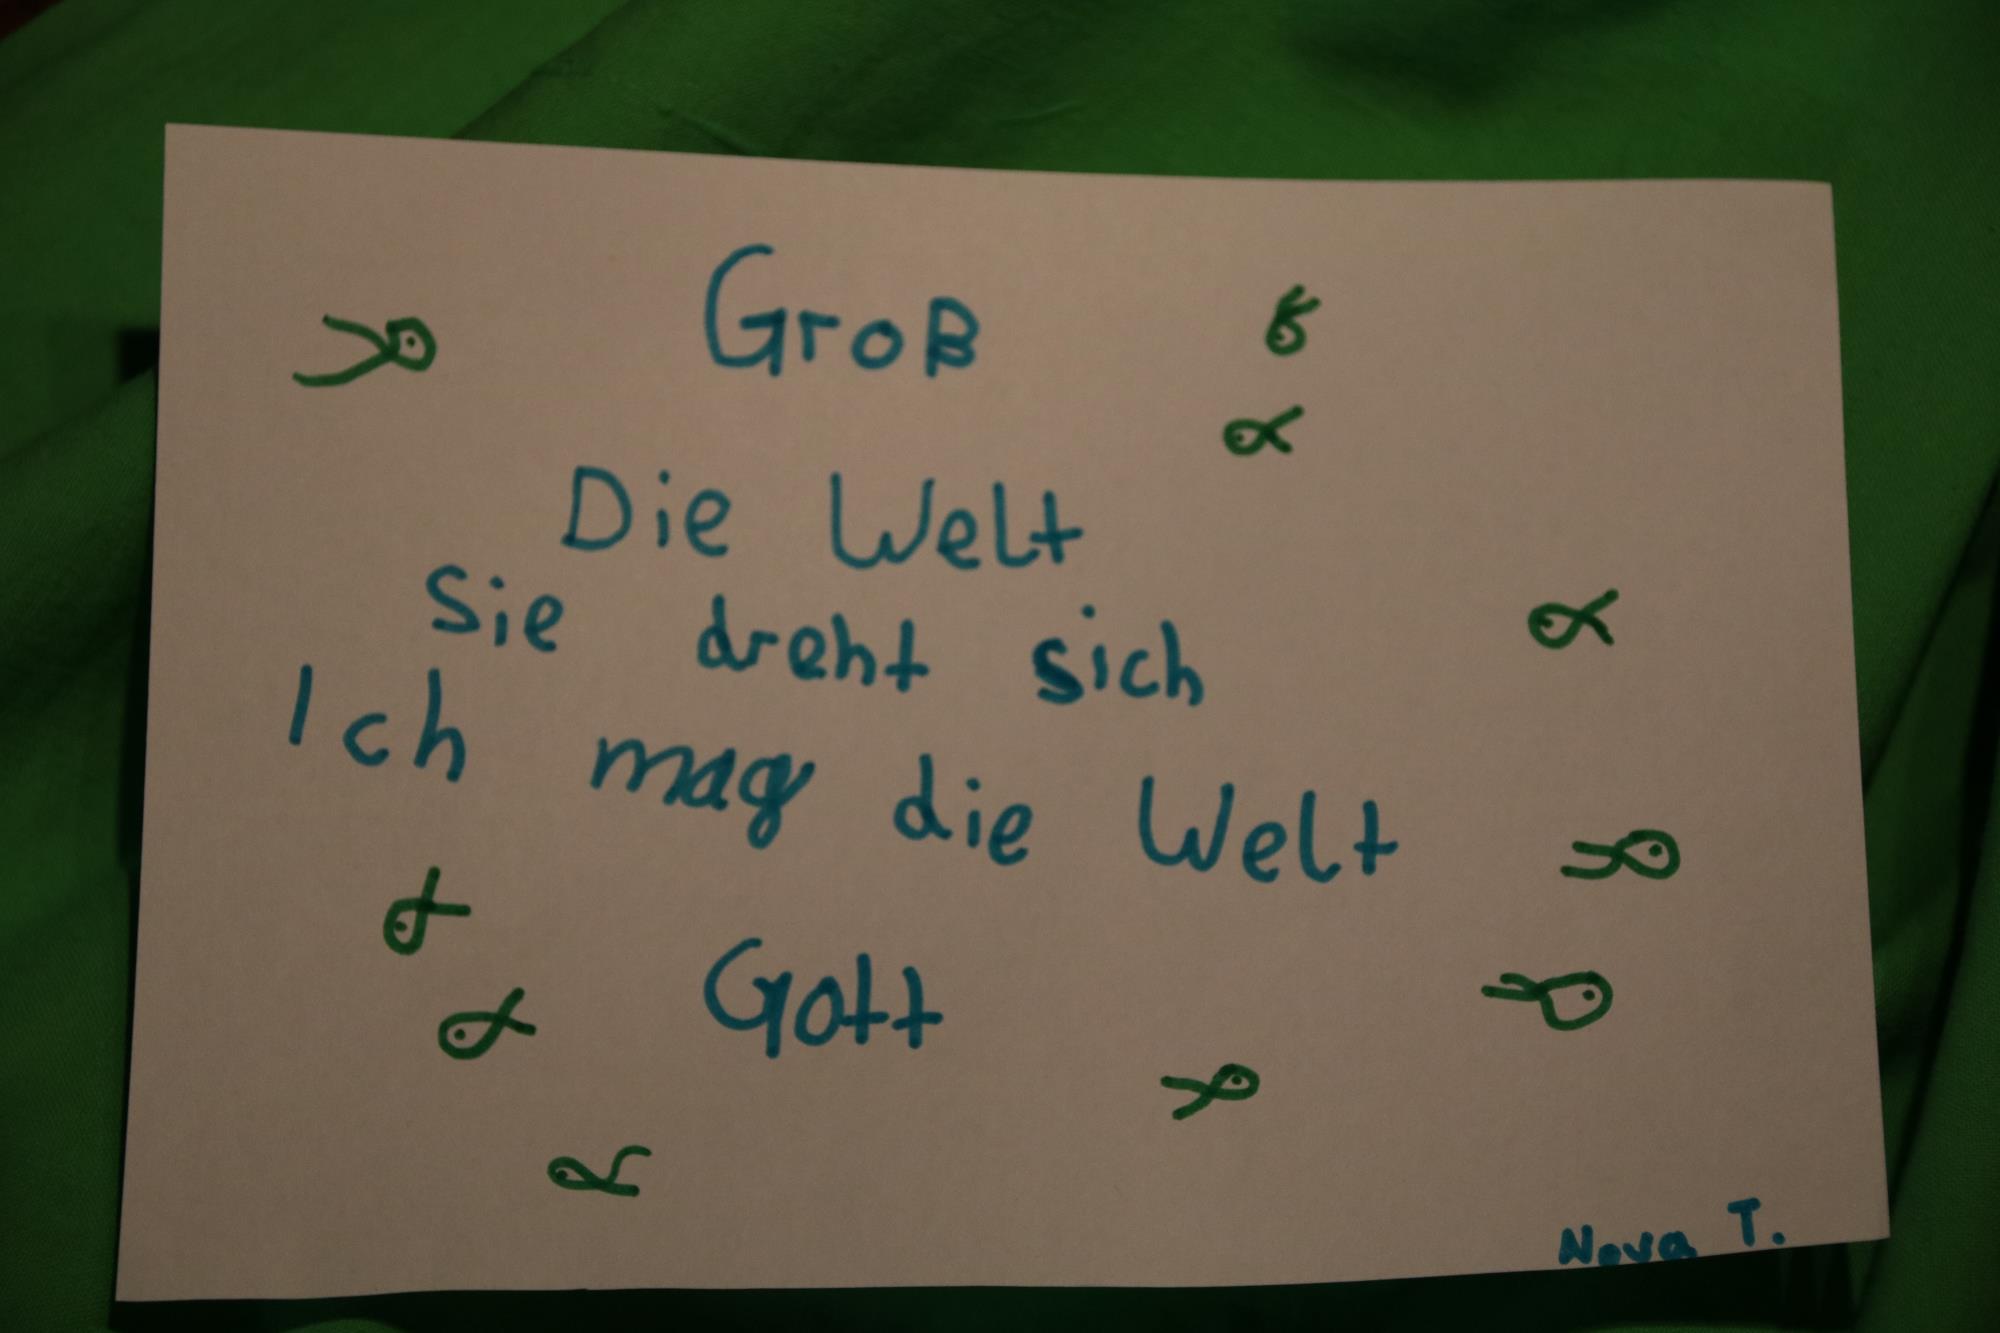 Groß
Die Welt
Sie dreht sich
Ich mag die Welt
Gott
Nova T.